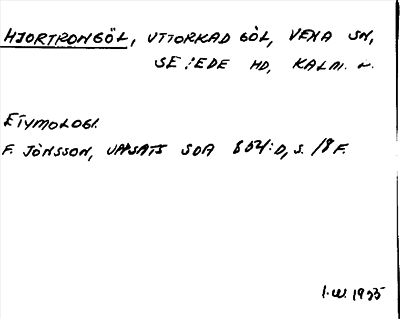 HJORTRONGÖL, UTTORKAD GÖL, VENA SN,
SEVEDE HD, KALM. L.
ETYMOLOGI.
F. JÖNSSON, UPPSATS SOA 854:D, S. 18 F.
I.W. 1955